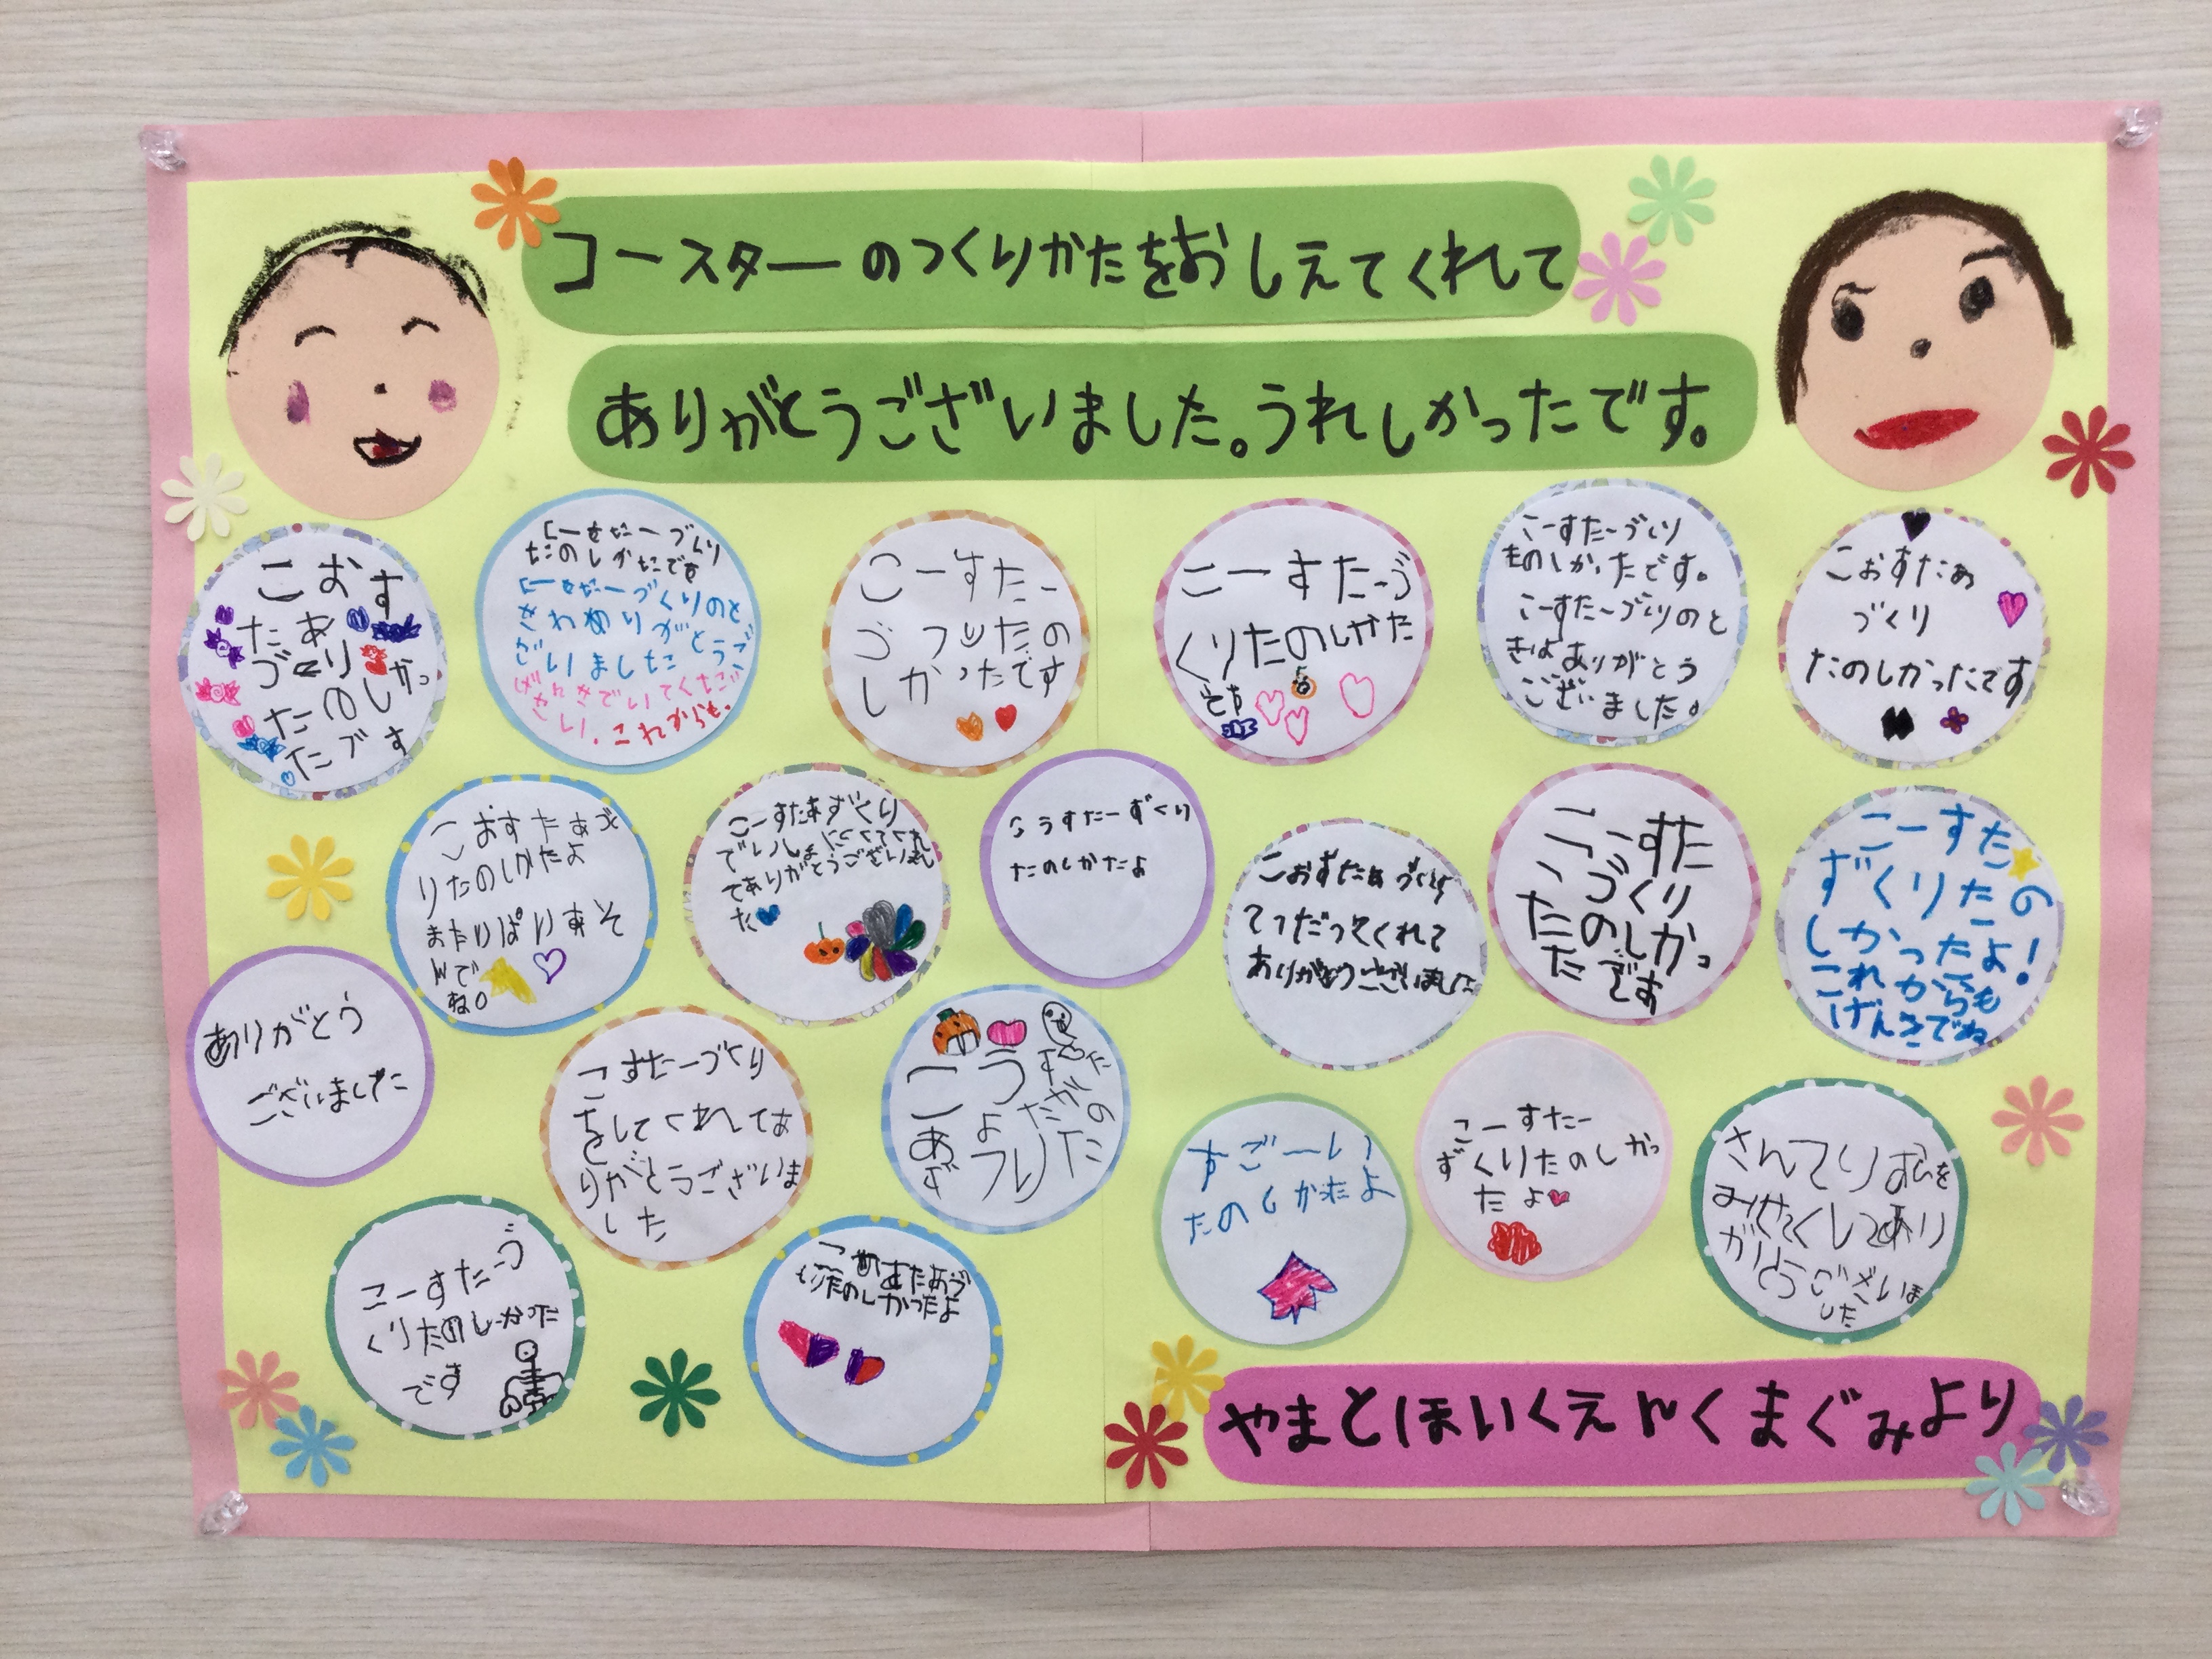 コースターのつくりかたをおしえてくれて
ありがとうございました。うれしかったです。
こおす
たあ
づくり
たのしかっ
たです
こーすたーづくり
たのしかたです
こーすたーづくりのと
きわありがとうご
ざいました
げんきでいてくださ
さい。これからも。
こーすたー
づ
たの
しかったです
こーすたーづ
くりたのしかた
です
こーすたーづくり
たのしかったです。
こーすたーづくりのと
きはありがとう
ございました。
こおすたぁ
づくり
たのしかったです
こおすたぁづく
りたのしかたよ
またりぱりすそ
んで
ね。
こーすたあずくり
でい
てありがとうございまし
た
こうすたーずくり
たのしかたよ
こおすたぁづくり
てつだってくれて
ありがとうございました
こーすた
ーづくり
たのしかっ
たです
こーすた
ずくりたの
しかったよ!
これからも
げんきでね
ありがとう
ございました
こーすたーづくり
をしてくれてあ
りがとうございま
した
すご~い
たのしかたよ
こーすたー
ずくりたのしかっ
たよ
さんてりおんを
みせてくれてあり
がとうございま
した
こーすたーづ
くりたのしかった
です
こおすたあづ
くりたのしかったよ
やまとほいくえんくまぐみより